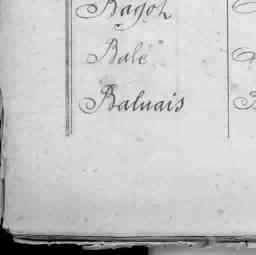 Bagot
Balé
Baluais